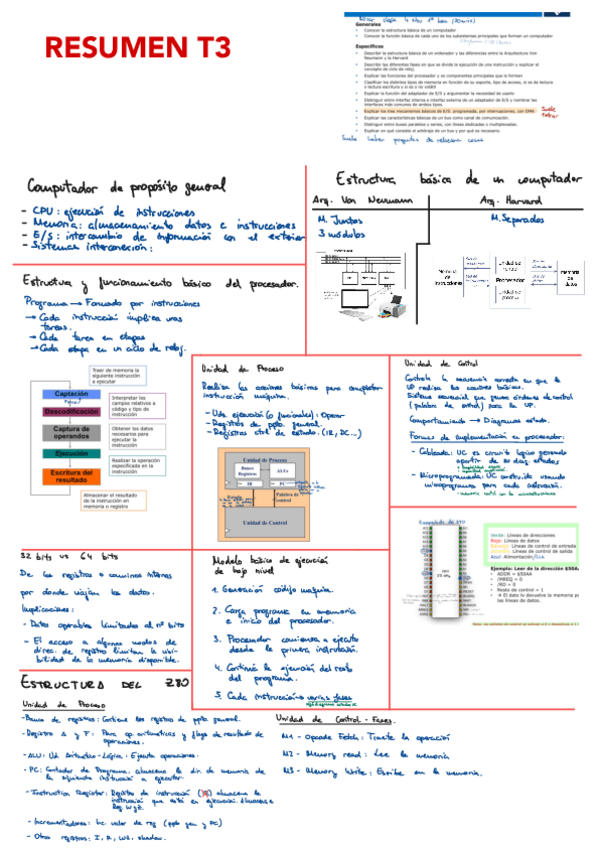 RESUMEN T3
Generales
Conocer la estructura básica de un computador
Conocer la función básica de cada uno de los subsistemas principales que forman un computador
Específicos
Describir la estructura básica de un ordenador y las diferencias entre la Arquitectura Von Neumann y la Harvard
Describir las diferentes fases en que se divide la ejecución de una instrucción y explicar el concepto de ciclo de reloj.
Explicar las funciones del procesador y los componentes principales que lo forman
Explicar la función del adaptador de E/S y argumentar la necesidad de usarlo
Distinguir entre interfaz interna e interfaz externa de un adaptador de E/S y nombrar las interfaces más comunes de ambos tipos.
Explicar los tres mecanismos básicos de E/S: programada, por interrupciones, con DMA
Suele entrar
Explicar las características básicas de un bus como canal de comunicación.
Distinguir entre buses paralelos y series, con líneas dedicadas o multiplexadas.
Explicar en qué consiste el arbitraje de un bus y por qué es necesario.
Suele haber preguntas de relacionar cosas
Computador de propósito general
- CPU: ejecución de instrucciones
- Memoria: almacenamiento datos e instrucciones
- E/S: intercambio de información con el exterior
- Sistemas interconexión:
Estructura básica de un computador
Arq. Von Neumann
Arq. Harvard
M. Juntas
3 módulos
M. Separadas
Memoria de instrucciones
Unidad de control
Procesador
Unidad de proceso
memoria de datos
Estructura y funcionamiento básico del procesador.
Programa → Formado por instrucciones
→ Cada instrucción implica unas tareas.
→ Cada tarea en etapas
→ Cada etapa en un ciclo de reloj.
Traer de memoria la siguiente instrucción a ejecutar
Captación
Descodificación
Interpretar los campos relativos a código y tipo de instrucción
Captura de operandos
Obtener los datos necesarios para ejecutar la instrucción
Ejecución
Realizar la operación especificada en la instrucción
Escritura del resultado
Almacenar el resultado de la instrucción en memoria o registro
Unidad de Proceso
Realiza las acciones básicas para completar instrucción máquina.
- Uds. ejecución (o funcionales): Operar
- Registros de ppto. general.
- Registros ctrl de estado. (IR, PC...)
Unidad de Proceso
Banco Registros
ALUs
IR
PC
Estado
Palabra de Control
Unidad de Control
Unidad de Control
Controla la secuencia correcta en que la UP realiza las acciones básicas.
Sistema secuencial que genera órdenes de control (palabra de control) para la UP.
Comportamiento → Diagramas estado.
Formas de implementación en procesador:
- Cableada: UC es circuito lógico generado a partir de su diag. estados
- Microprogramada: UC construida usando microprogramas para cada instrucción.
32 bits vs 64 bits
De los registros o caminos internos por donde viajan los datos.
Implicaciones:
- Datos operables limitados al nº bits
- El acceso a algunos modos de direc. de registro limitan la visibilidad de la memoria disponible.
Modelo básico de ejecución de bajo nivel
1. Generación código máquina.
2. Carga programa en memoria e inicio del procesador.
3. Procesador comienza a ejecutar desde la primera instrucción.
4. Continúa la ejecución del resto del programa.
5. Cada instrucción → varias fases
Verde: Líneas de direcciones
Rojo: Líneas de datos
Líneas de control de entrada
Líneas de control de salida
Azul: Alimentación/CLK
Ejemplo: Leer de la dirección $50AA
ADDR = $50AA
/MREQ = 0
/RD = 0
Resto de control = 1
→ El dato lo devuelve la memoria por las líneas de datos.
ESTRUCTURA DEL Z80
Unidad de Proceso
- Banco de registros: Contiene los registros de ppto general.
- Registro A y F: Para op. aritméticas y flags de resultado de operaciones.
- ALU: Ud. Aritmético-Lógica: Ejecuta operaciones.
- PC: Contador de Programa: almacena la dir. de memoria de la siguiente instrucción a ejecutar.
- Instruction Register: Registro de instrucción (IR) almacena la instrucción que está en ejecución.
- Incrementadores: Inc. valor de reg (ppto gen y PC)
- Otros registros: I, R, WZ, shadow.
Unidad de Control - Fases.
M1 - Opcode Fetch: Trae la operación
M2 - Memory read: Lee la memoria
M3 - Memory Write: Escribe en la memoria.